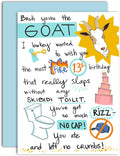 Bruh you're the
GOAT
I lowkey wanted to wish you
the most fire 13th birthday
that really slaps
without any
SKIBIDI TOILET.
You're so
much
NO CAP!
RIZZ
You ate
and left no crumbs!